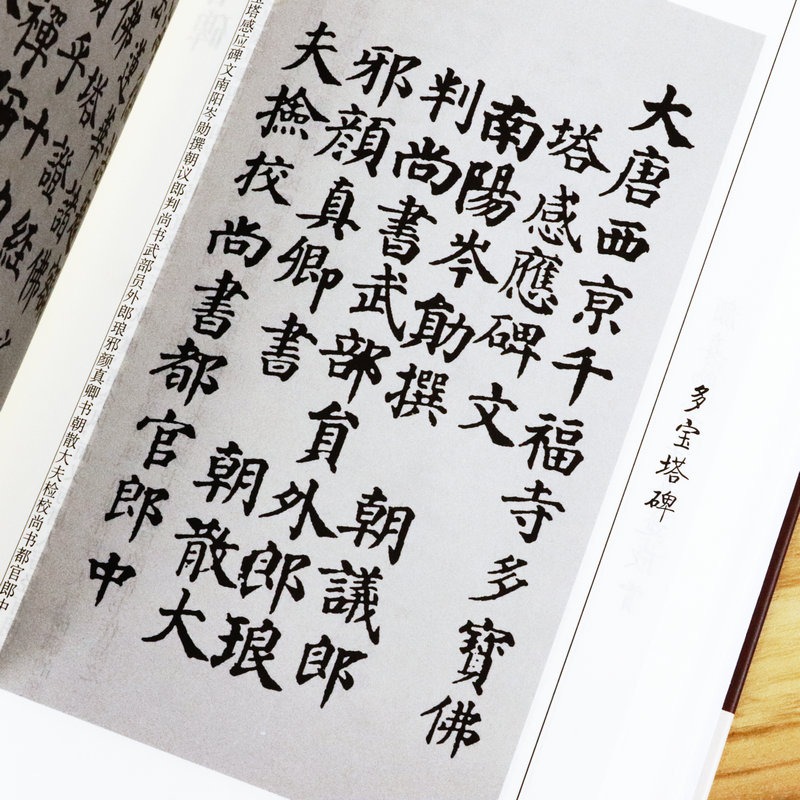 多宝塔碑
大唐西亰千福寺多寶佛
塔感應碑文
南陽岑勛撰 朝議郎
判尚書武部員外郎琅
邪顏真卿書 朝散大
夫撿挍尚書都官郎中
宝塔感应碑文南阳岑勋撰朝议郎判尚书武部员外郎琅邪颜真卿书朝散大夫检校尚书都官郎中